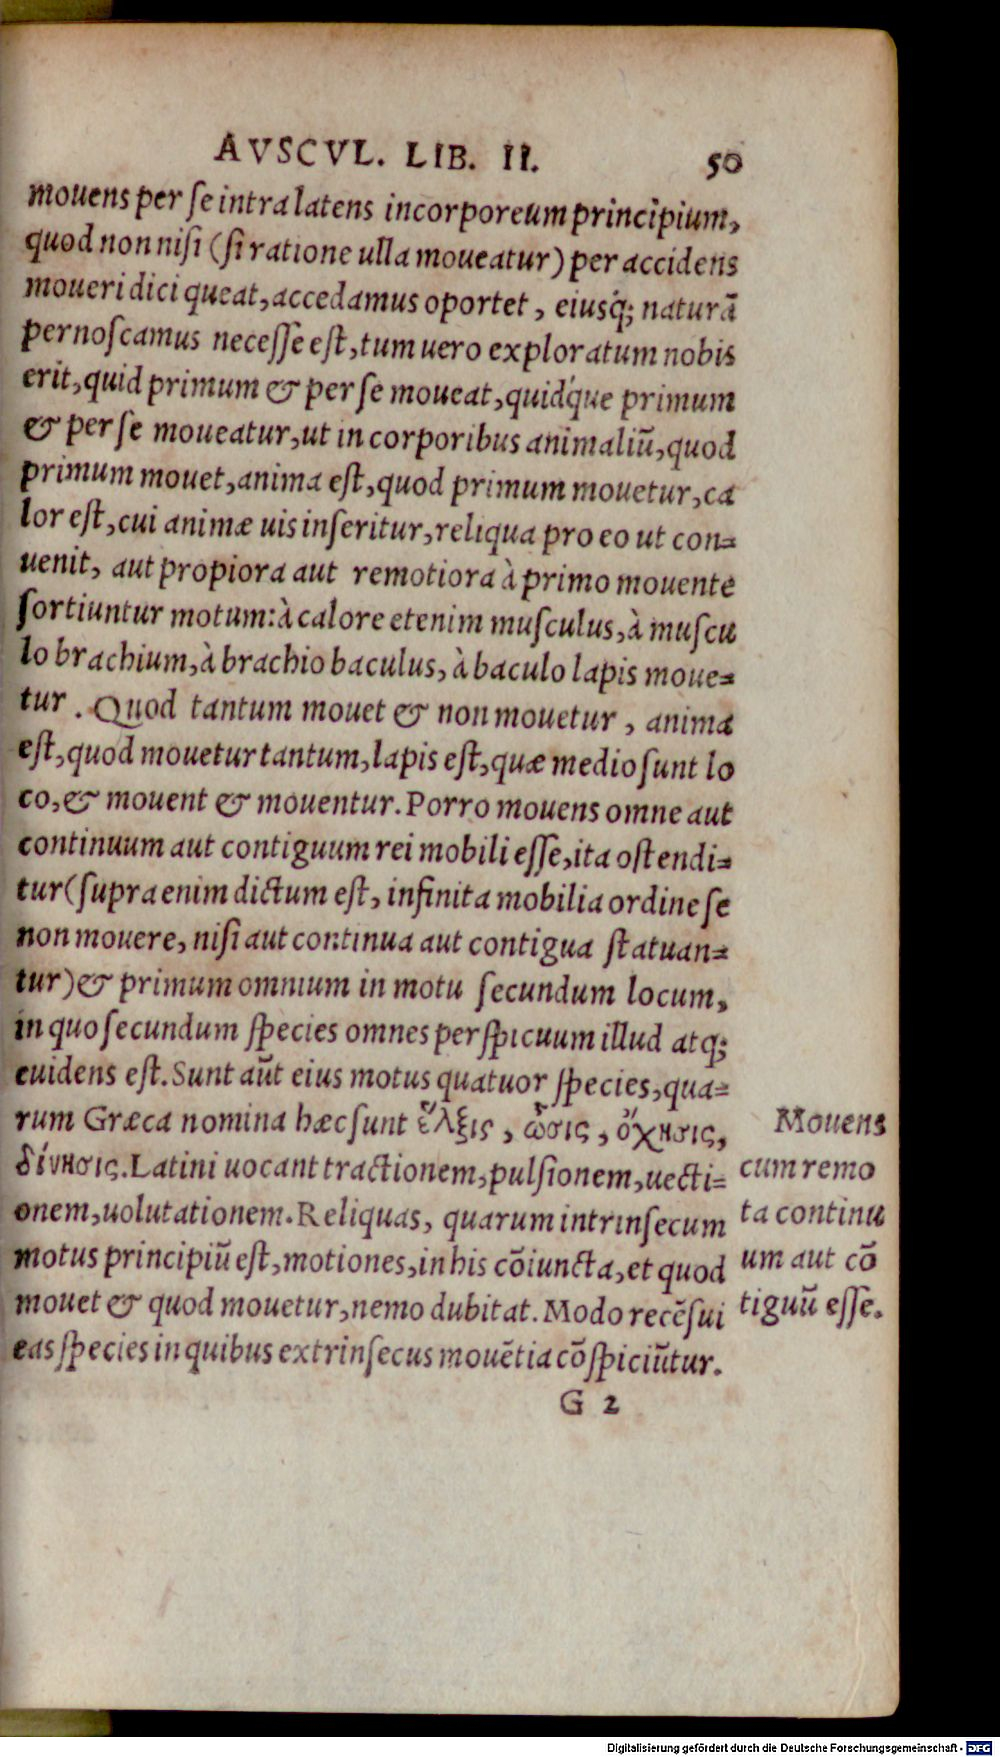 AVSCVL. LIB. II. 50
mouens per se intra latens incorporeum principium,
quod non nisi (si ratione ulla moueatur) per accidens
moueri dici queat, accedamus oportet, eiusq́; naturā
pernoscamus necesse est, tum uero exploratum nobis
erit, quid primum & per se moueat, quid́que primum
& per se moueatur, ut in corporibus animaliū, quod
primum mouet, anima est, quod primum mouetur, ca
lor est, cui animæ uis inseritur, reliqua pro eo ut con=
uenit, aut propiora aut remotiora à primo mouente
sortiuntur motum: à calore etenim musculus, à muscu
lo brachium, à brachio baculus, à baculo lapis moue=
tur. Quod tantum mouet & non mouetur, anima
est, quod mouetur tantum, lapis est, quæ medio sunt lo
co, & mouent & mouentur. Porro mouens omne aut
continuum aut contiguum rei mobili esse, ita ostendi=
tur (supra enim dictum est, infinita mobilia ordine se
non mouere, nisi aut continua aut contigua statuan=
tur) & primum omnium in motu secundum locum,
in quo secundum species omnes perspicuum illud atq;
euidens est. Sunt aūt eius motus quatuor species, qua=
rum Græca nomina hæc sunt ἕλξις, ὦσις, ὄχησις,
δίνησις. Latini uocant tractionem, pulsionem, uecti=
onem, uolutationem. Reliquas, quarum intrinsecum
motus principiū est, motiones, in his cōiuncta, et quod
mouet & quod mouetur, nemo dubitat. Modo recēsui
eas species in quibus extrinsecus mouētia cōspiciūtur.
G 2
Mouens
cum remo
ta continu
um aut cō
tiguū esse.
Digitalisierung gefördert durch die Deutsche Forschungsgemeinschaft - DFG